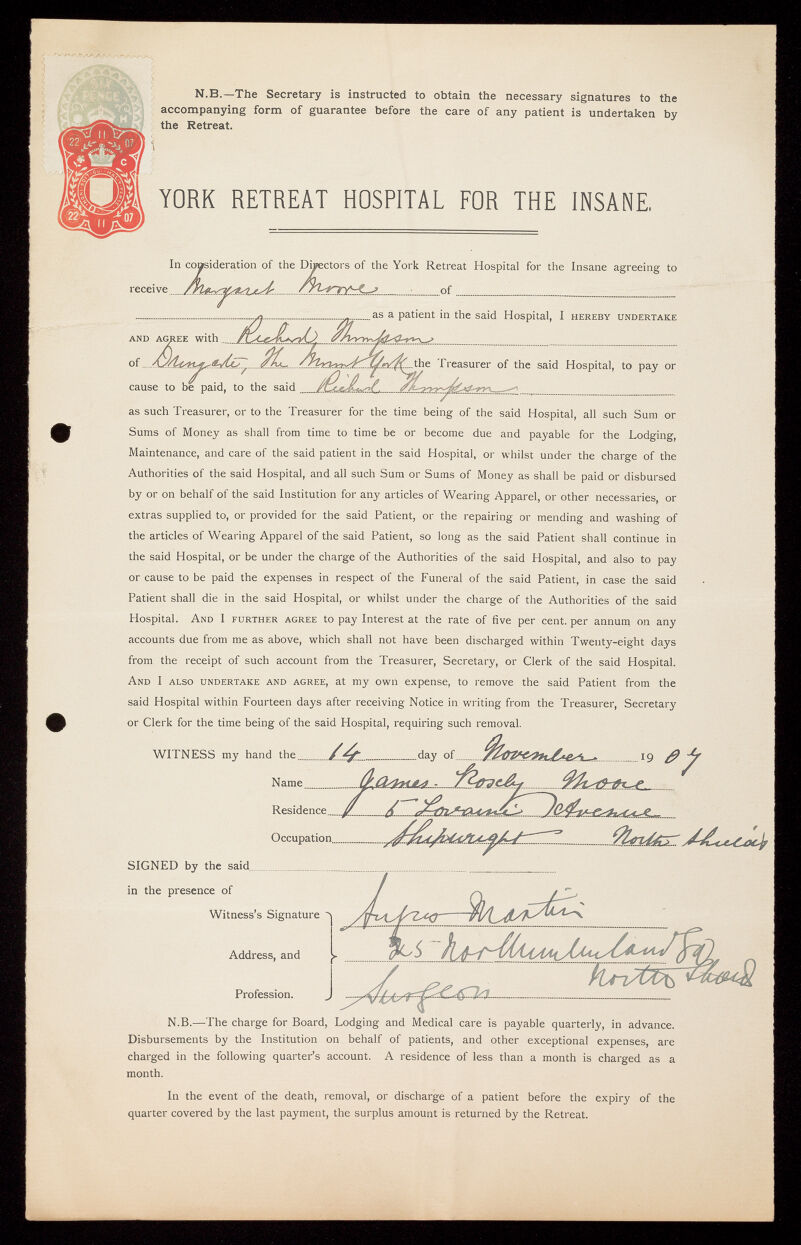 N.B.—The Secretary is instructed to obtain the necessary signatures to the
accompanying form of guarantee before the care of any patient is undertaken by
the Retreat.
PENCE
22 11 07
C
22 11 07
YORK RETREAT HOSPITAL FOR THE INSANE.
In consideration of the Directors of the York Retreat Hospital for the Insane agreeing to
receive Margaret Moore of
as a patient in the said Hospital, I HEREBY UNDERTAKE
AND AGREE with Richard Thompson
of Dringcote, The Mount York the Treasurer of the said Hospital, to pay or
cause to be paid, to the said Richard Thompson
as such Treasurer, or to the Treasurer for the time being of the said Hospital, all such Sum or
Sums of Money as shall from time to time be or become due and payable for the Lodging,
Maintenance, and care of the said patient in the said Hospital, or whilst under the charge of the
Authorities of the said Hospital, and all such Sum or Sums of Money as shall be paid or disbursed
by or on behalf of the said Institution for any articles of Wearing Apparel, or other necessaries, or
extras supplied to, or provided for the said Patient, or the repairing or mending and washing of
the articles of Wearing Apparel of the said Patient, so long as the said Patient shall continue in
the said Hospital, or be under the charge of the Authorities of the said Hospital, and also to pay
or cause to be paid the expenses in respect of the Funeral of the said Patient, in case the said
Patient shall die in the said Hospital, or whilst under the charge of the Authorities of the said
Hospital. AND I FURTHER AGREE to pay Interest at the rate of five per cent. per annum on any
accounts due from me as above, which shall not have been discharged within Twenty-eight days
from the receipt of such account from the Treasurer, Secretary, or Clerk of the said Hospital.
AND I ALSO UNDERTAKE AND AGREE, at my own expense, to remove the said Patient from the
said Hospital within Fourteen days after receiving Notice in writing from the Treasurer, Secretary
or Clerk for the time being of the said Hospital, requiring such removal.
WITNESS my hand the 14 day of November 1907
Name James Rosely Moore
Residence 5 Lovaine Avenue
Occupation Shipwright North Shields
SIGNED by the said
in the presence of
Witness's Signature Martin
Address, and 25 Northumberland Sq
North Shields
Profession. Surgeon
N.B.—The charge for Board, Lodging and Medical care is payable quarterly, in advance.
Disbursements by the Institution on behalf of patients, and other exceptional expenses, are
charged in the following quarter's account. A residence of less than a month is charged as a
month.
In the event of the death, removal, or discharge of a patient before the expiry of the
quarter covered by the last payment, the surplus amount is returned by the Retreat.